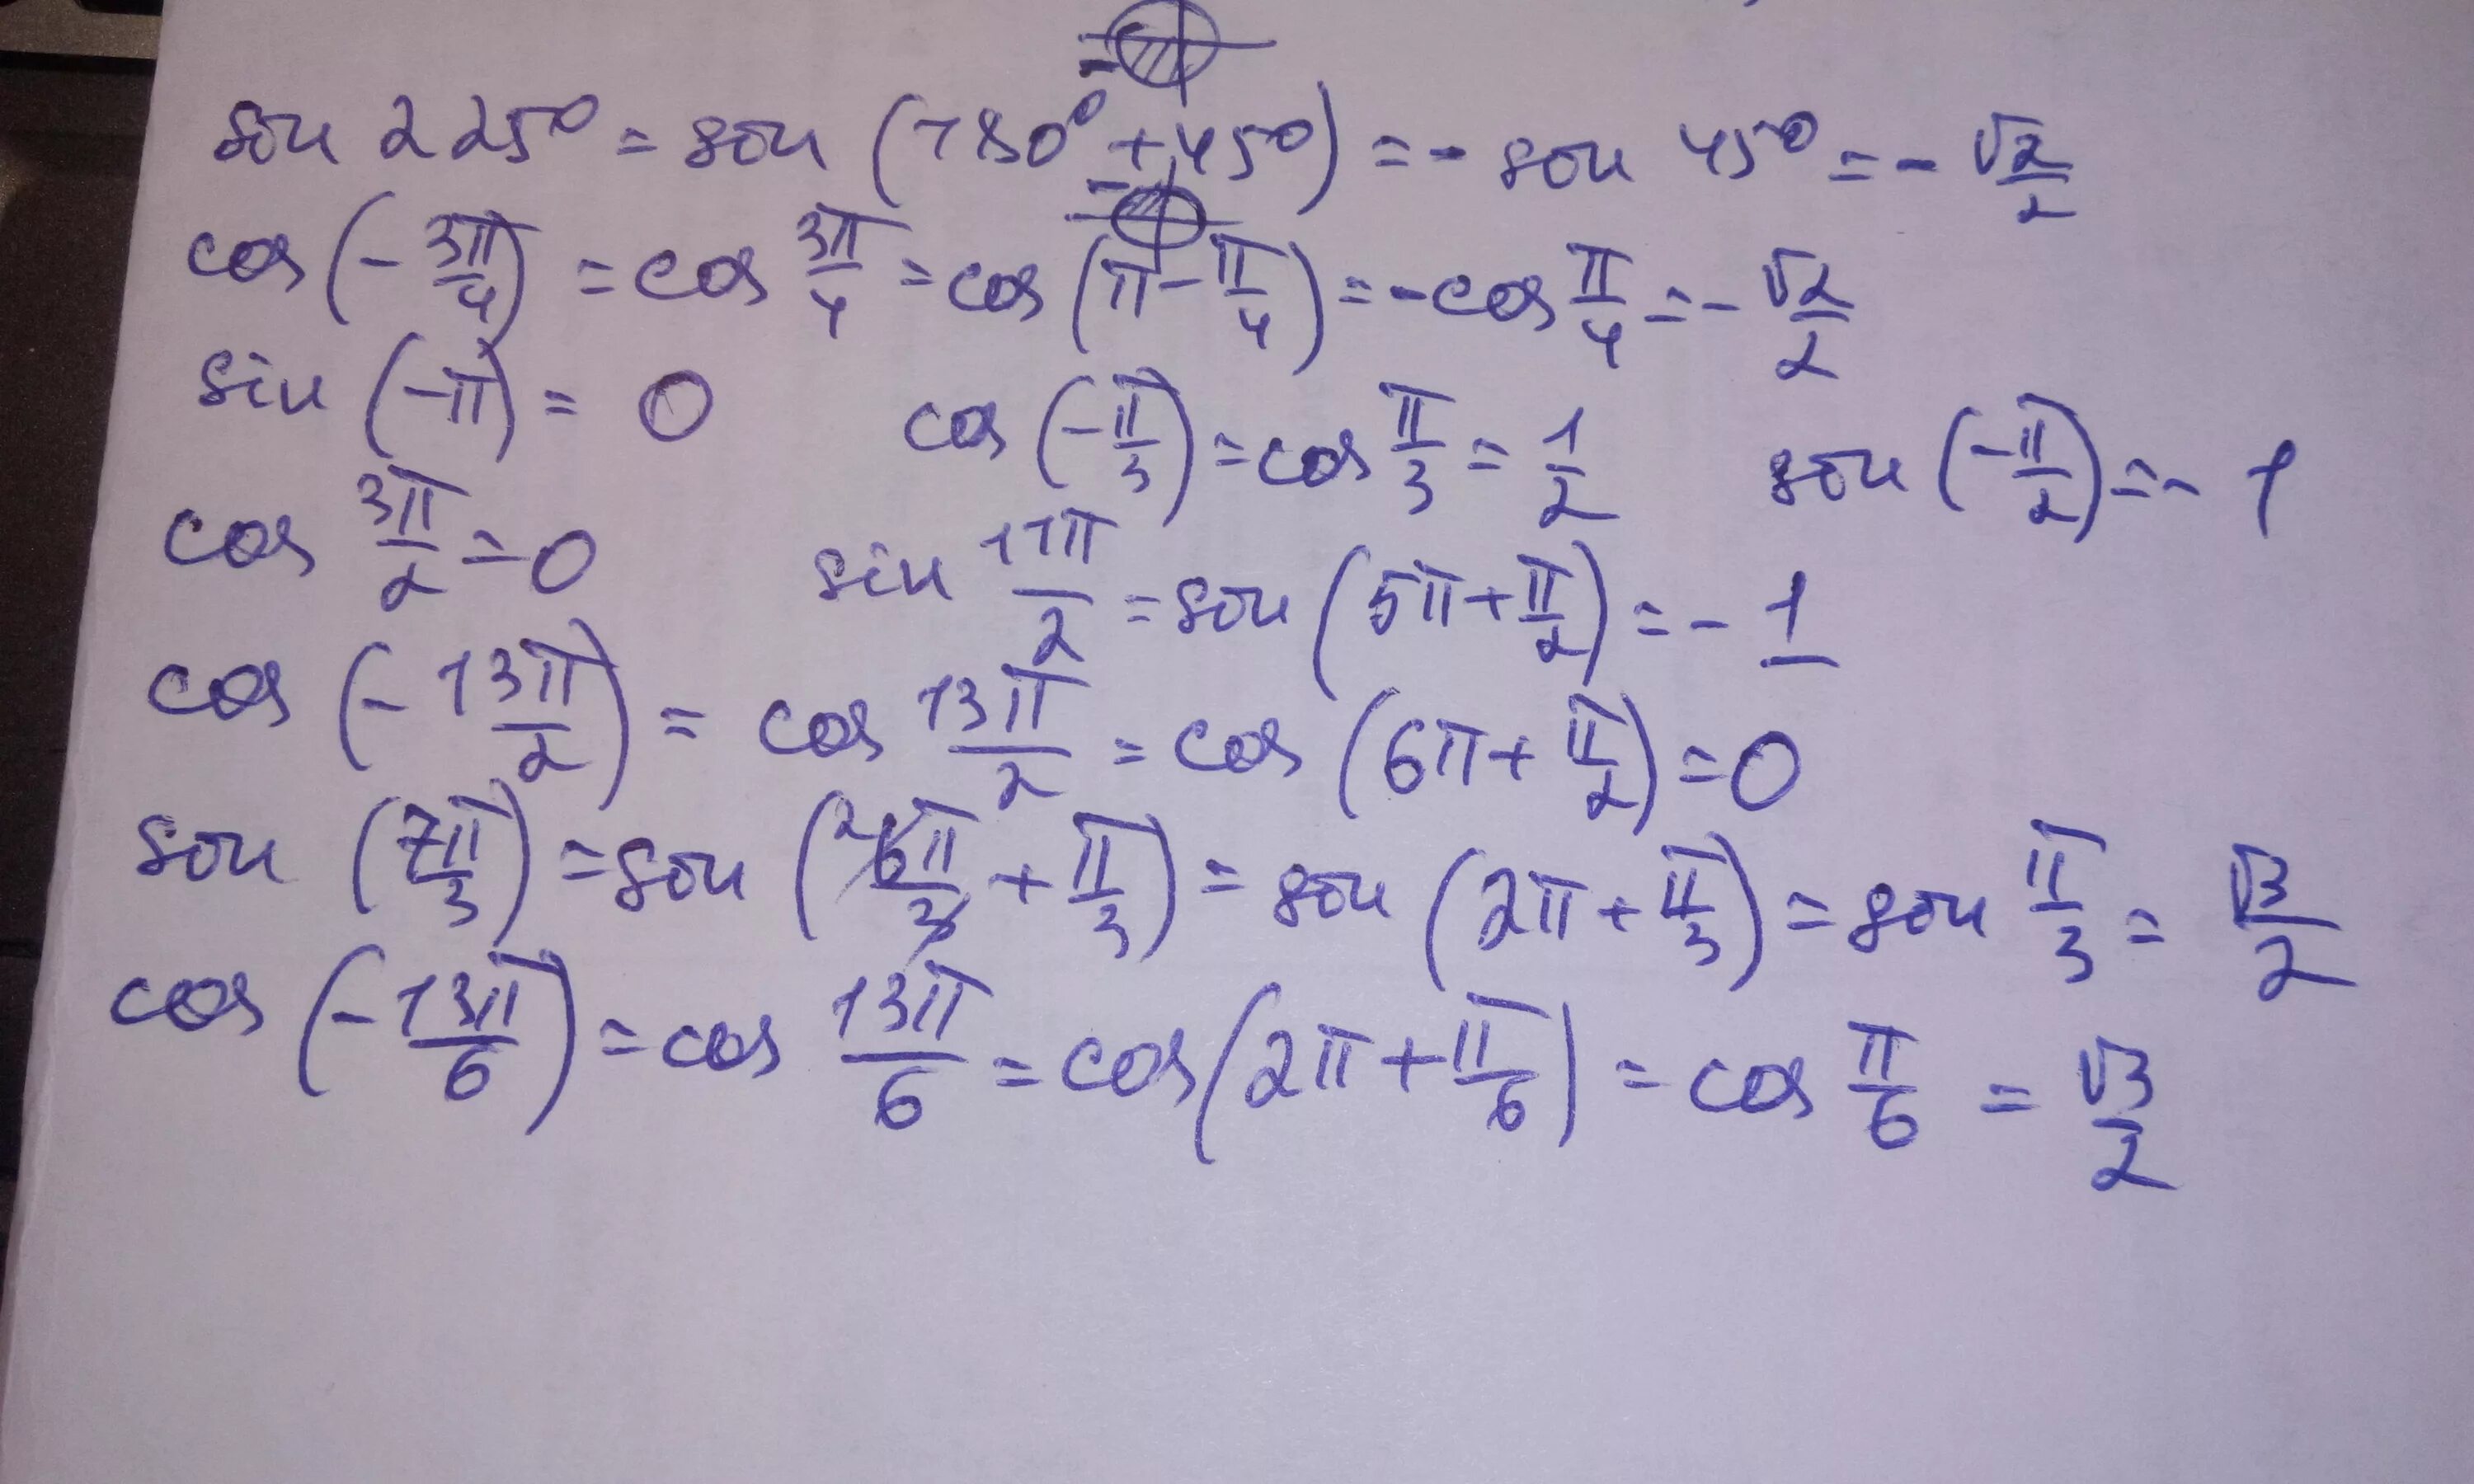 sin 225° = sin (180° + 45°) = - sin 45° = - √2/2
cos (- 3π/4) = cos 3π/4 = cos (π - π/4) = - cos π/4 = - √2/2
sin (-π) = 0 cos (- π/3) = cos π/3 = 1/2 sin (- π/2) = - 1
cos 3π/2 = 0 sin 11π/2 = sin (5π + π/2) = - 1
cos (- 13π/2) = cos 13π/2 = cos (6π + π/2) = 0
sin (7π/3) = sin (6π/3 + π/3) = sin (2π + π/3) = sin π/3 = √3/2
cos (- 13π/6) = cos 13π/6 = cos (2π + π/6) = cos π/6 = √3/2